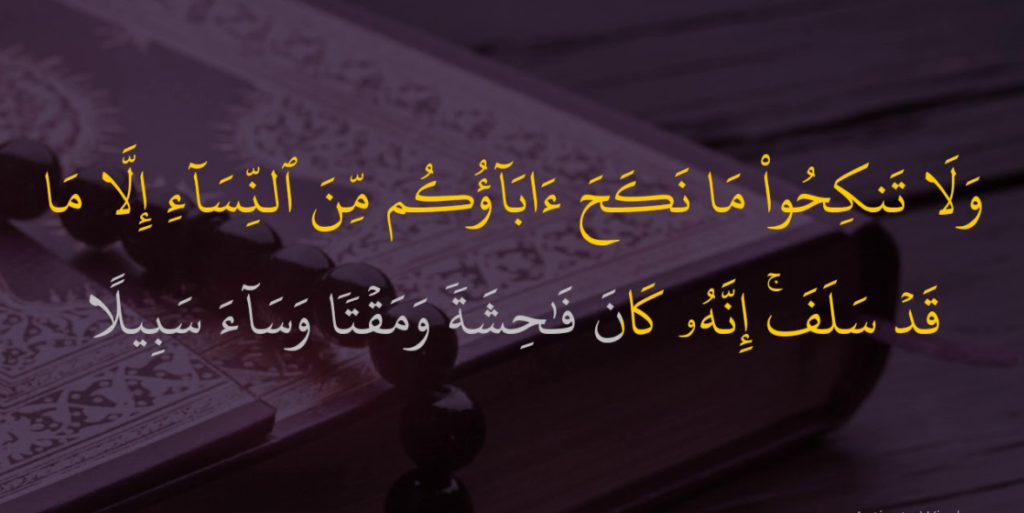 وَلَا تَنكِحُوا۟ مَا نَكَحَ ءَابَآؤُكُم مِّنَ ٱلنِّسَآءِ إِلَّا مَا
قَدْ سَلَفَ ۚ إِنَّهُۥ كَانَ فَـٰحِشَةً وَمَقْتًا وَسَآءَ سَبِيلًا